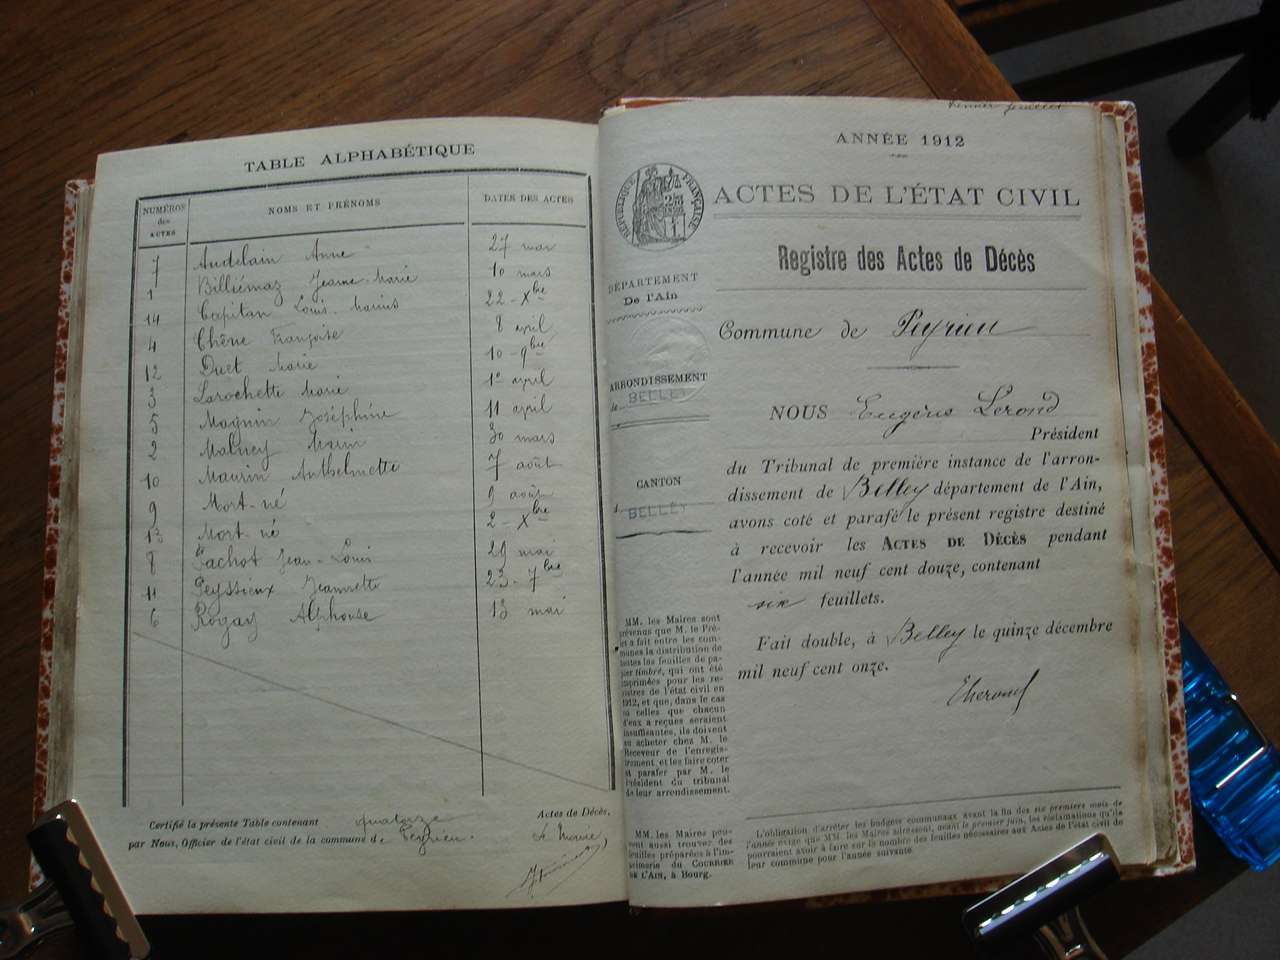 TABLE ALPHABÉTIQUE
NUMÉROS des ACTES NOMS ET PRÉNOMS DATES DES ACTES
7 Audelain Anne 27 mai
1 Billiémaz Jeanne-Marie 10 mars
14 Capitan Louis-Marius 22-Xbre
4 Chêne Françoise 8 april
12 Duet Marie 10-9bre
3 Larochette Marie 1er april
5 Magnin Joséphine 11 april
2 Marin 30 mars
10 Maurin Anthelmette 7 août
9 Mort-né 9 août
13 Mort-né 2-Xbre
8 Pachot Jean-Louis 29 mai
11 Peyssieux Jeannette 23-7bre
6 Rogay Alphonse 13 mai
Certifié la présente Table contenant quatorze Actes de Décès,
par Nous, Officier de l'état civil de la commune de Peyrieu.
ANNÉE 1912
ACTES DE L'ÉTAT CIVIL
RÉPUBLIQUE FRANÇAISE
Registre des Actes de Décès
DÉPARTEMENT
De l'Ain
Commune de Peyrieu
ARRONDISSEMENT
de BELLEY
NOUS Eugène Lerond
Président
du Tribunal de première instance de l'arron-
dissement de Belley département de l'Ain,
avons coté et parafé le présent registre destiné
à recevoir les ACTES DE DÉCÈS pendant
l'année mil neuf cent douze, contenant
six feuillets.
Fait double, à Belley le quinze décembre
mil neuf cent onze.
CANTON
BELLEY
MM. les Maires sont
prévenus que M. le Pré-
fet a fait entre les com-
munes la distribution de
toutes les feuilles de pa-
pier timbré, qui ont été
imprimées pour les re-
gistres de l'état civil en
1912, et que, dans le cas
où celles que chacun
d'eux a reçues seraient
insuffisantes, ils doivent
en acheter chez M. le
Receveur de l'enregis-
trement, et les faire coter
et parafer par M. le
Président du tribunal
de leur arrondissement.
MM. les Maires peu-
vent aussi trouver des
feuilles préparées à l'im-
primerie du COURRIER
DE L'AIN, à Bourg.
L'obligation d'arrêter les budgets communaux avant la fin des six premiers mois de
l'année exige que MM. les Maires adressent, avant le premier juin, les réclamations qu'ils
pourraient avoir à faire sur le nombre des feuilles nécessaires aux Actes de l'état civil de
leur commune pour l'année suivante.